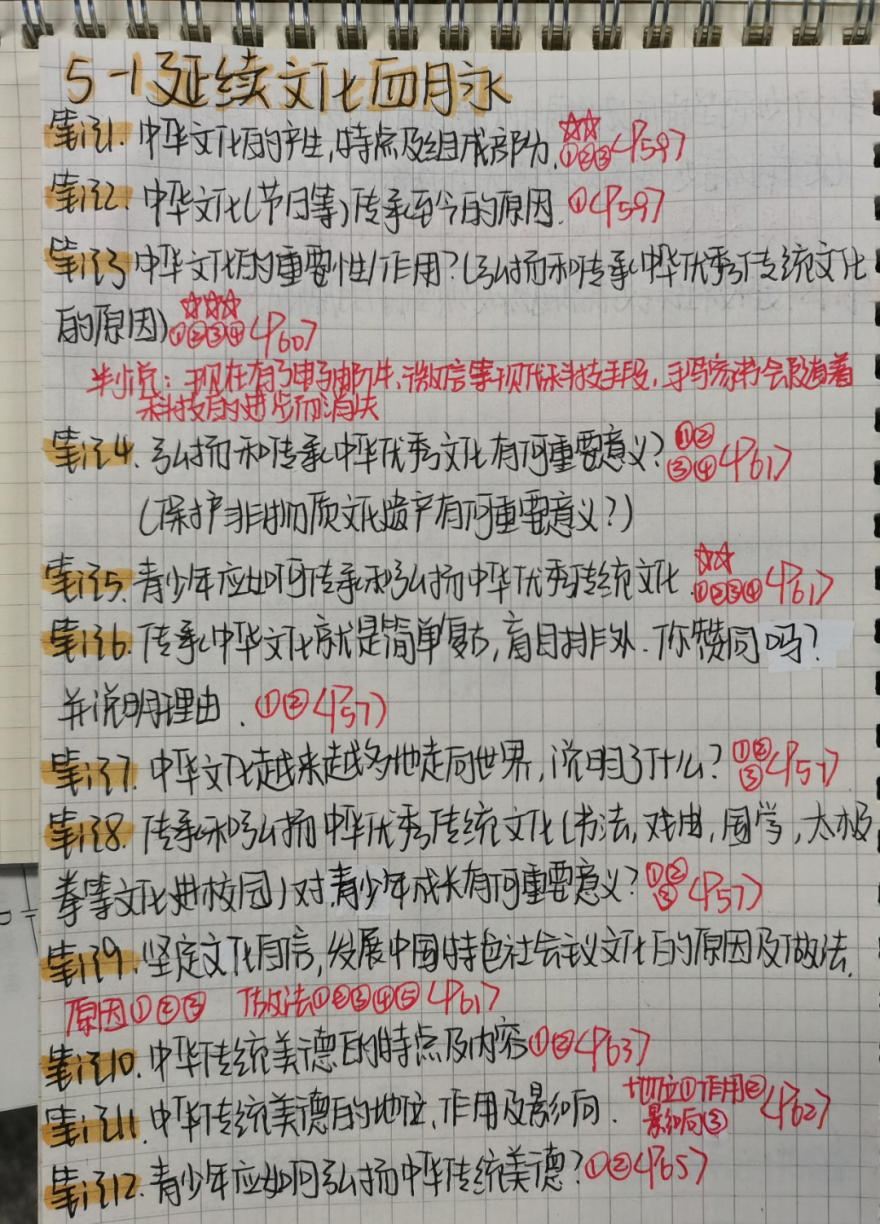 5-1延续文化血脉
笔记1. 中华文化的产生,特点及组成部分. ☆☆ ①②③<P59>
笔记2. 中华文化(节日等)传承至今的原因. ①<P59>
笔记3 中华文化的重要性/作用?(弘扬和传承中华优秀传统文化
的原因) ☆☆☆ ①②③④<P60>
判说:现在有了电子邮件、微信等现代科技手段,手写家书会随着
科技的进步而消失
笔记4. 弘扬和传承中华优秀文化有何重要意义? ①② ③④<P61>
(保护非物质文化遗产有何重要意义?)
笔记5. 青少年应如何传承和弘扬中华优秀传统文化. ☆☆ ①②③④<P61>
笔记6. 传承中华文化就是简单复古,盲目排外.你赞同吗?
并说明理由. ①②<P57>
笔记7. 中华文化越来越多地走向世界,说明了什么? ①② ③<P57>
笔记8. 传承和弘扬中华优秀传统文化(书法,戏曲,国学,太极
拳等文化进校园)对青少年成长有何重要意义? ①② ③<P57>
笔记9. 坚定文化自信,发展中国特色社会主义文化的原因及做法.
原因①②③ 做法①②③④⑤<P61>
笔记10. 中华传统美德的特点及内容①②<P63>
笔记11. 中华传统美德的地位,作用及影响. 地位①作用② 影响③<P62>
笔记12. 青少年应如何弘扬中华传统美德?①②<P65>